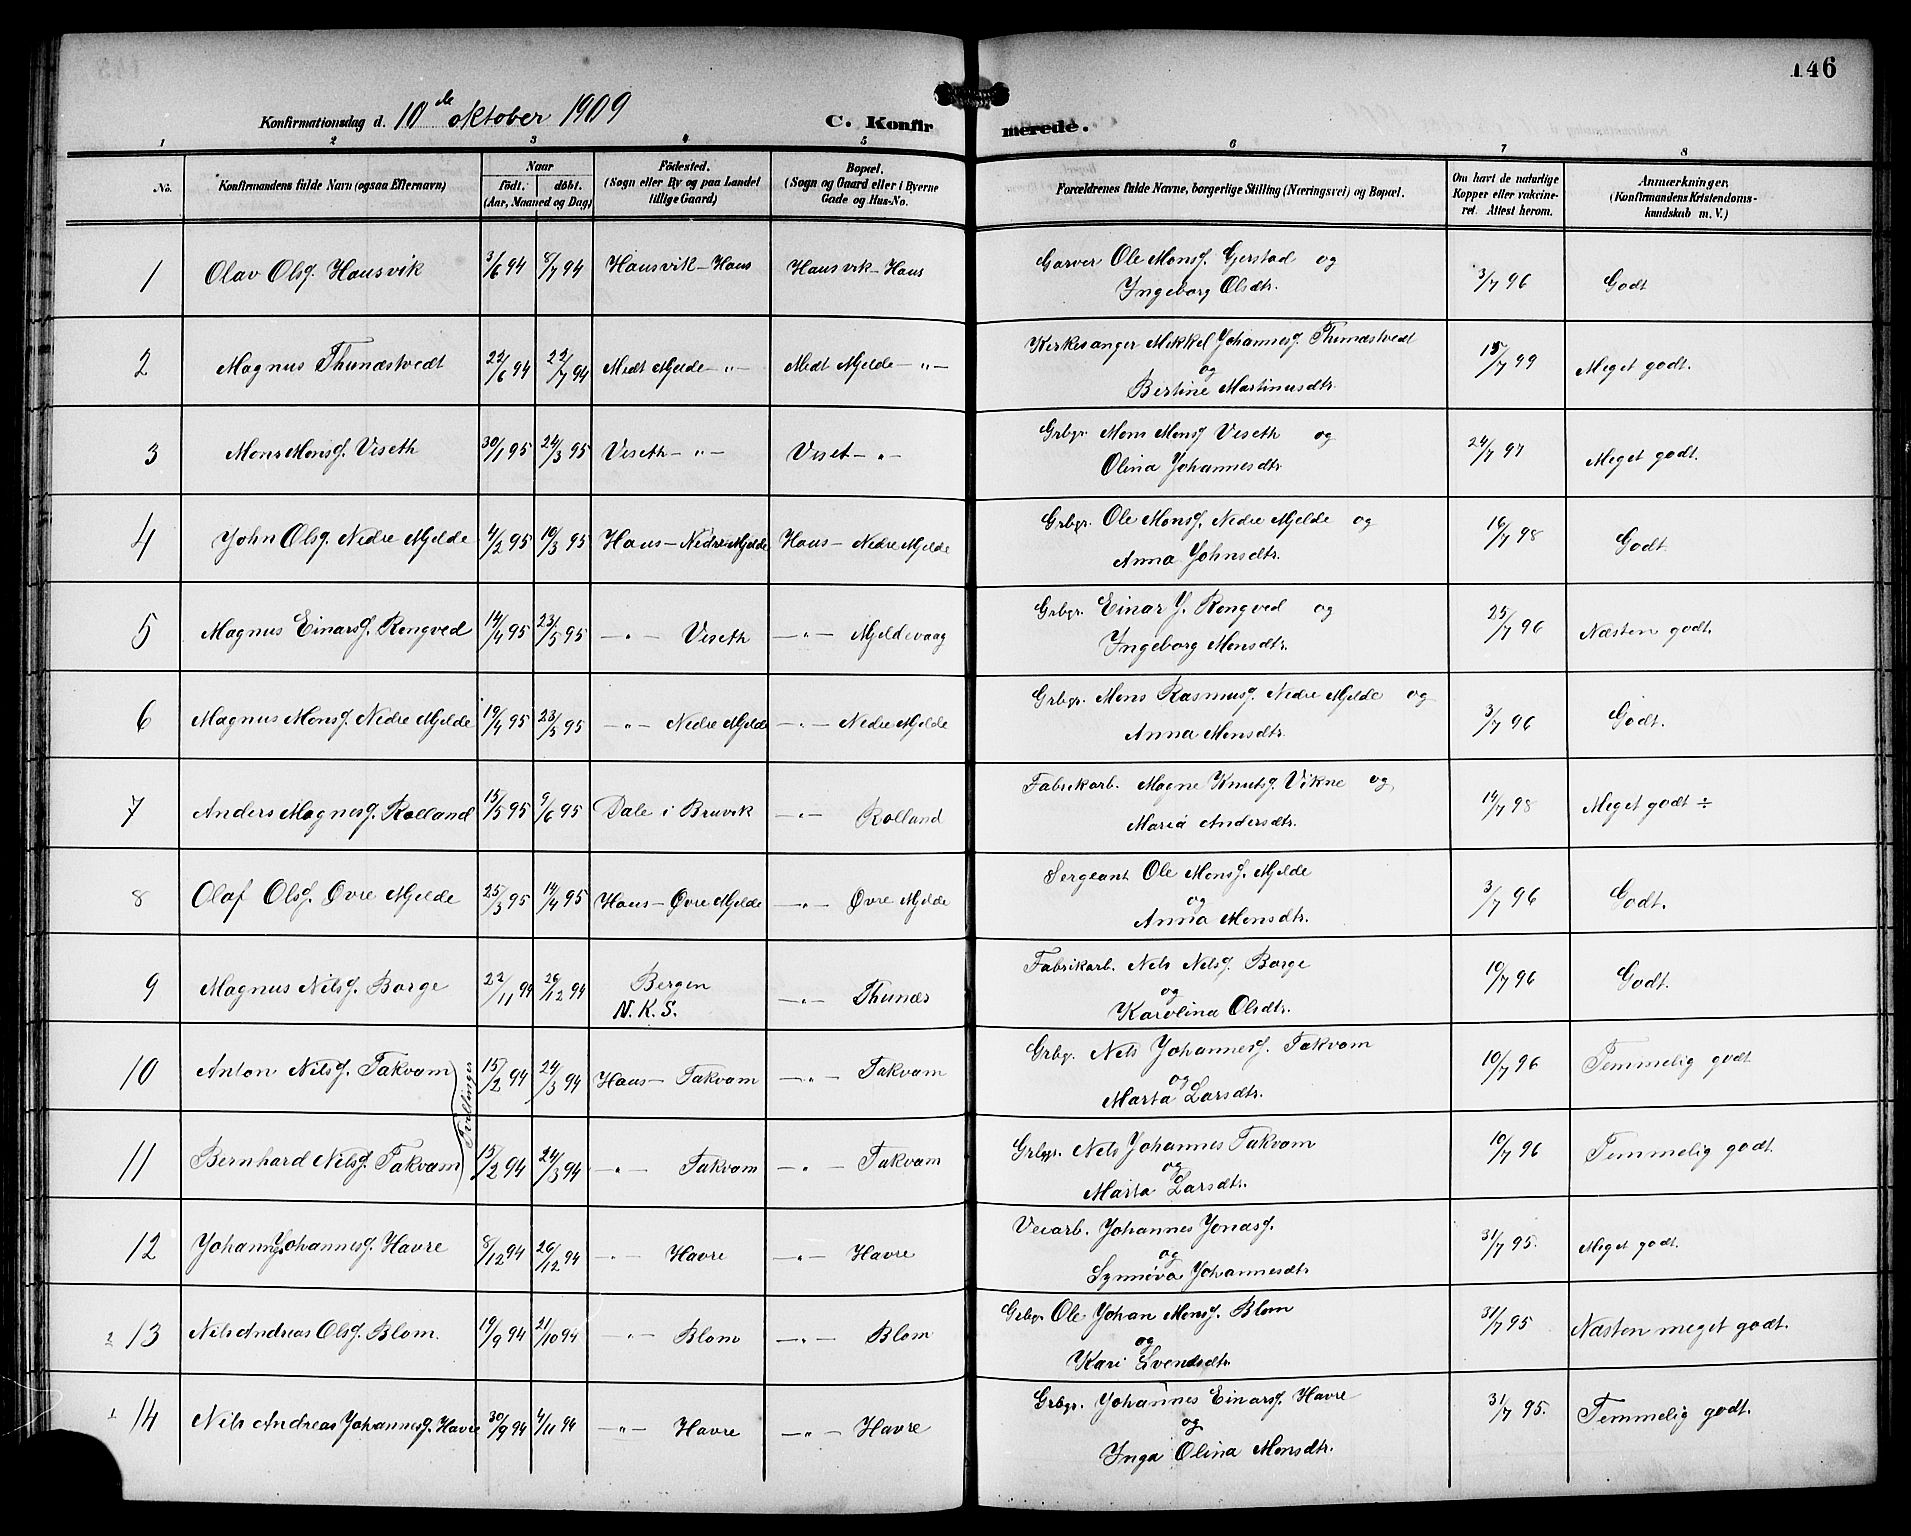 146
Konfirmationsdag d. 10de oktober 1909 C. Konfirmerede.
1 2 3 4 5 6 7 8
No. Konfirmandens fulde Navn (ogsaa Efternavn) Naar födt. döbt. (Aar, Maaned og Dag) Födested. (Sogn eller By og paa Landet tillige Gaard) Bopæl. (Sogn og Gaard eller i Byerne Gade og Hus-No. Forældrenes fulde Navne, borgerlige Stilling (Næringsvei) og Bopæl. Om havt de naturlige Kopper eller vakcineret. Attest herom. Anmærkninger. (Konfirmandens Kristendomskundskab m. V.)
1 Olav Olsf. Hausvik 3/6 94 8/7 94 Hausvik - Haus Hausvik - Haus Garver Ole Monsf. Gjerstad og Ingeborg Olsdtr. 3/7 96 Godt
2 Magnus Thunæstvedt 22/6 94 22/7 94 Midt Mjelde - " - Midt Mjelde - " - Kirkesanger Mikkel Johannesf. Thunæstvedt og Bertine Martinusdtr. 15/7 99 Meget godt.
3 Mons Monsf. Viseth 30/1 95 24/3 95 Viseth - " - Viset - " - Grbgr. Mons Monsf. Viseth og Olina Johannesdtr. 24/7 97 Meget godt.
4 John Olsf. Nedre Mjelde 4/2 95 10/3 95 Haus - Nedre Mjelde Haus - Nedre Mjelde Grbgr. Ole Monsf. Nedre Mjelde og Anna Johnsdtr. 16/7 98 Godt
5 Magnus Einarsf. Rongved 14/4 95 23/5 95 - " - Viseth - " - Mjeldevaag Grbgr. Einar J. Rongved og Ingeborg Monsdtr. 25/7 96 Næsten godt.
6 Magnus Monsf. Nedre Mjelde 19/4 95 23/5 95 - " - Nedre Mjelde - " - Nedre Mjelde Grbgr. Mons Rasmusf. Nedre Mjelde og Anna Monsdtr. 3/7 96 Godt.
7 Anders Magnesf. Rolland 15/5 95 9/6 95 Dale i Bruvik - " - Rolland Fabrikarb. Magne Knutsf. Vikne og Maria Andersdtr. 14/7 98 Meget godt ÷
8 Olaf Olsf. Øvre Mjelde 25/3 95 14/4 95 Haus - Øvre Mjelde - " - Øvre Mjelde Sergeant Ole Monsf. Mjelde og Anna Monsdtr. 3/7 96 Godt.
9 Magnus Nilsf. Borge 22/11 94 26/12 94 Bergen N.K.S. - " - Thunæs Fabrikarb. Nils Nilsf. Borge og Karolina Olsdtr. 10/7 96 Godt.
10 Anton Nilsf. Takvam Tvillinger 15/2 94 24/3 94 Haus - Takvam - " - Takvam Grbgr. Nils Johannesf. Takvam og Marta Larsdtr. 10/7 96 Temmelig godt
11 Bernhard Nilsf. Takvam 15/2 94 24/3 94 - " - Takvam - " - Takvam Grbgr. Nils Johannes Takvam og Marta Larsdtr. 10/7 96 Temmelig godt.
12 Johannes Johannesf. Havre 8/12 94 26/12 94 - " - Havre - " - Havre Veiarb. Johannes Jonasf. og Synnøva Johannesdtr 31/7 95. Meget godt.
2 13 Nils Andreas Olsf. Blom. 19/9 94 21/10 94 - " - Blom - " - Blom Grbgr Ole Johan Monsf. Blom og Kari Svendsdtr. 31/7 95 Næsten meget godt.
1 14 Nils Andreas Johannesf. Havre 30/9 94 4/11 94 - " - Havre - " - Havre Grbgr. Johannes Einarsf. Havre og Inga Olina Monsdtr. 31/7 95. Temmelig godt.